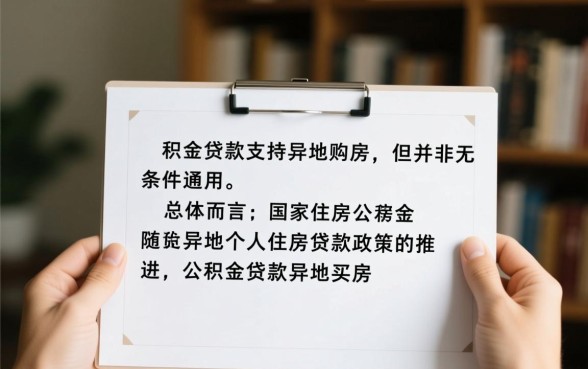 积金贷款支持异地购房，但并非无
条件通用。
总体而言；国家住房公积金
随异地个人住房贷款政策的推
进，公积金贷款异地买房